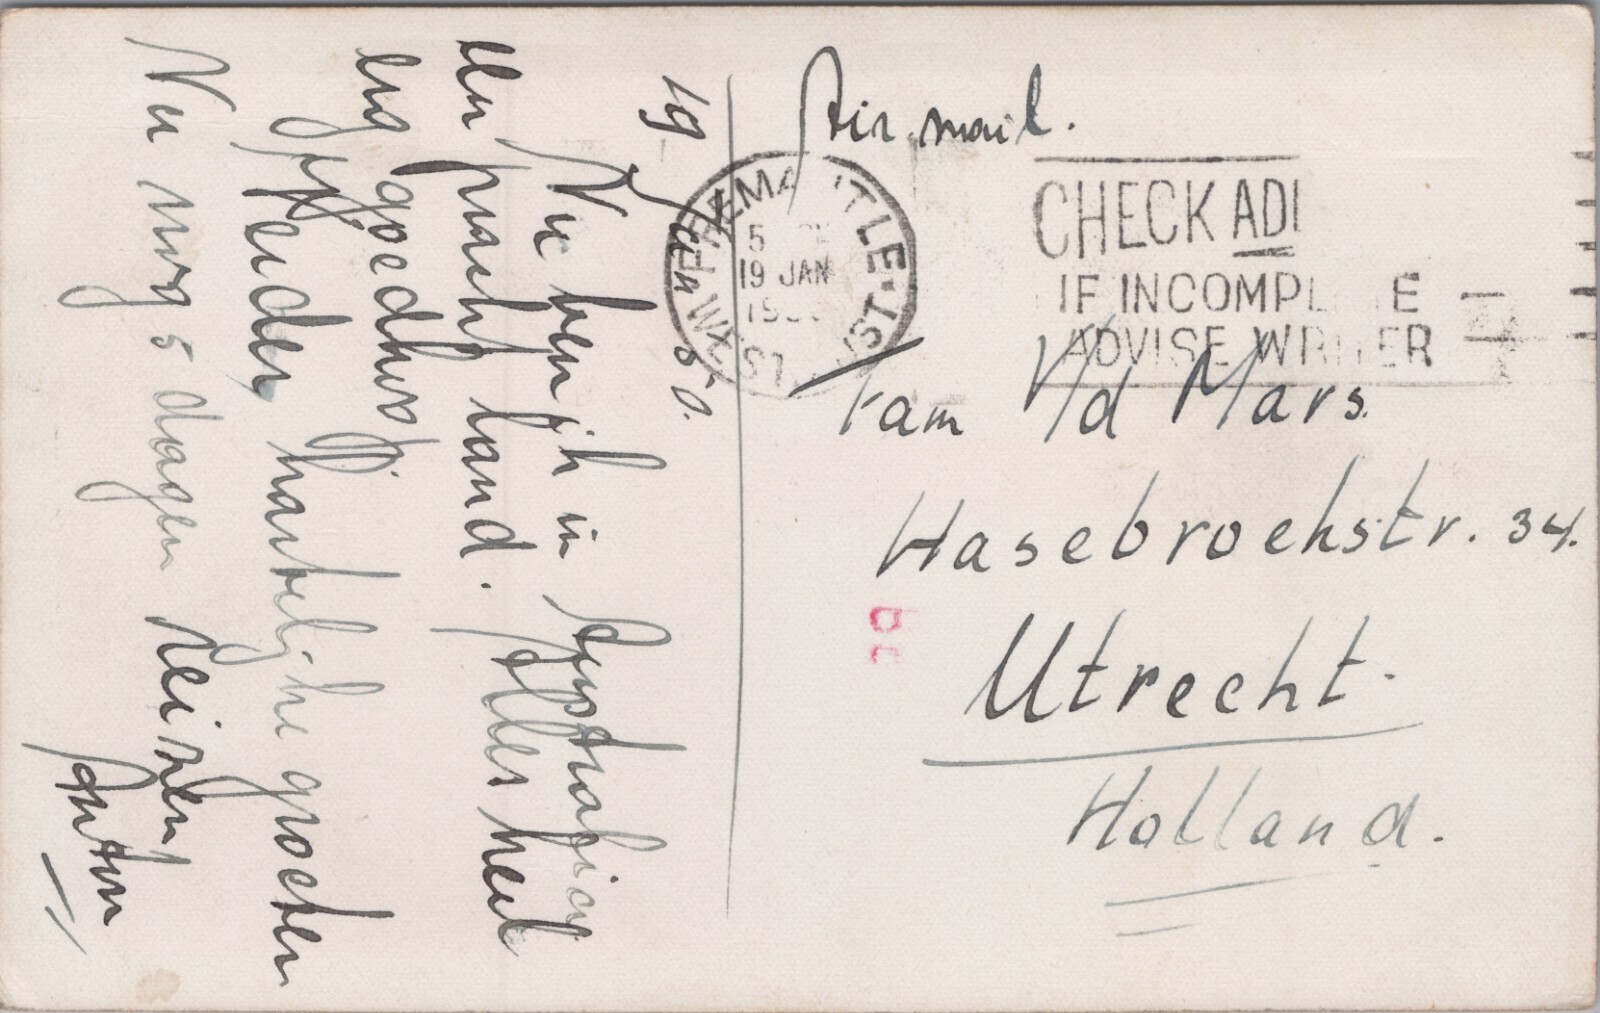 19 Jan 50.
Nu ben ik in Australie
een pracht land. Alles heel
erg goedkoop.
Verder hartelijke groeten
Nu nog 5 dagen reizen
Anton
Air mail.
FREMANTLE
19 JAN
WEST
CHECK AD
IF INCOMPL E
ADVISE WRITER
Fam V/d Mars.
Hasebroekstr. 34.
Utrecht.
Holland.